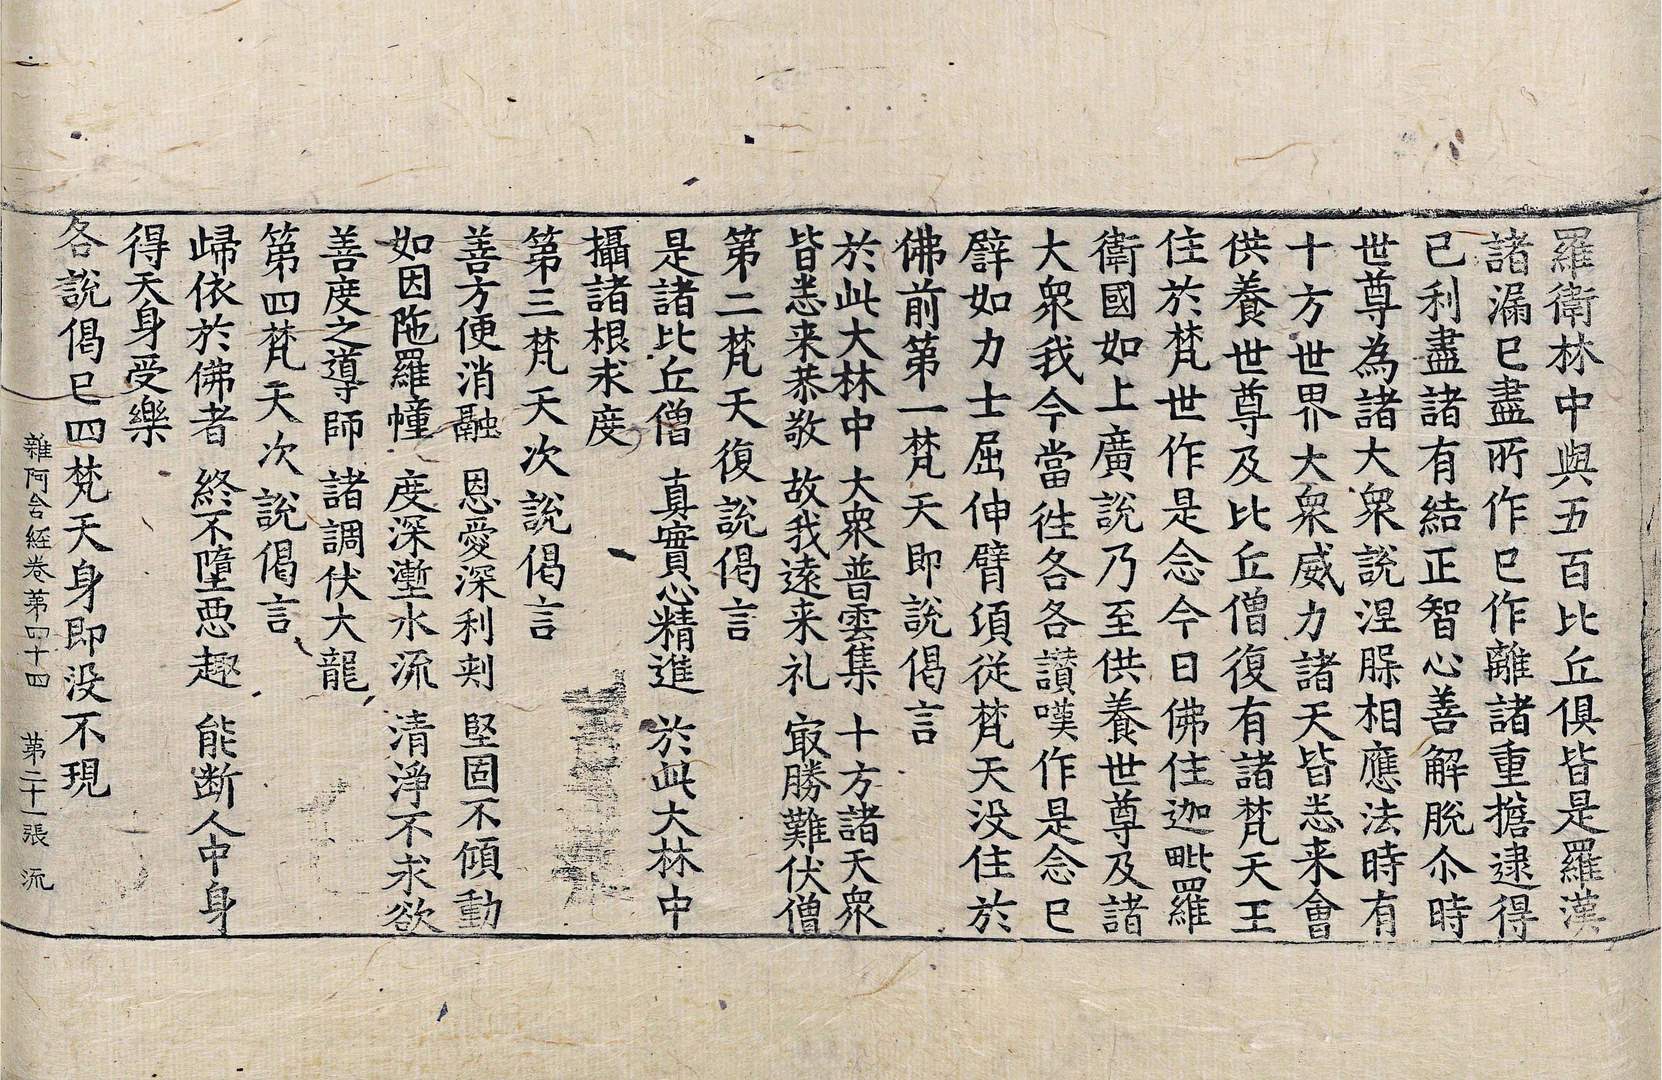 羅衛林中與五百比丘俱皆是羅漢
諸漏已盡所作已作離諸重擔逮得
已利盡諸有結正智心善解脫尒時
世尊為諸大衆說涅槃相應法時有
十方世界大衆威力諸天皆悉来會
供養世尊及比丘僧復有諸梵天王
住於梵世作是念今日佛住迦毗羅
衛國如上廣說乃至供養世尊及諸
大衆我今當徃各各讃嘆作是念已
譬如力士屈伸臂頃從梵天没住於
佛前第一梵天即說偈言
於此大林中 大衆普雲集 十方諸天衆
皆悉来恭敬 故我遠来礼 㝡勝難伏僧
第二梵天復說偈言
是諸比丘僧 真實心精進 於此大林中
攝諸根求度
第三梵天次說偈言
善方便消融 恩愛深利刾 堅固不傾動
如因陁羅幢 度深壍水流 清淨不求欲
善度之導師 諸調伏大龍
第四梵天次說偈言
歸依於佛者 終不墮惡趣 能断人中身
得天身受樂
各說偈已四梵天身即没不現
雜阿含經卷第四十四 第二十一張 流